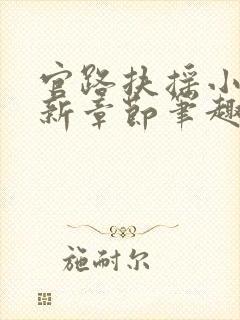 官路扶摇小
新章节笔趣
施耐尔